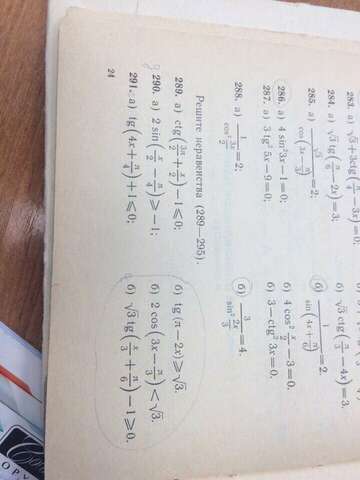 283. а) √3+3ctg(π/4−3x)=0;
284. а) √3 tg(π/6−2x)=3; б) √3 ctg(π/3−4x)=3.
285. а) √3/cos(3x−π/3)=2; б) 1/sin(4x+π/6)=2.
286. а) 4 sin²3x−1=0; б) 4 cos² x/2−3=0.
287. а) 3 tg² 5x−9=0; б) 3−ctg² 3x=0.
288. а) 1/cos² 3x/2=2; б) 3/sin² 2x/3=4.
Решите неравенства (289—295).
289. а) ctg(3π/2+x/2)−1⩽0; б) tg (π−2x)⩾√3.
290. а) 2 sin(x/2−π/4)⩾−1; б) 2 cos(3x−π/3)<√3.
291. а) tg(4x+π/4)+1⩽0; б) √3 tg(x/3+π/6)−1⩾0.
24